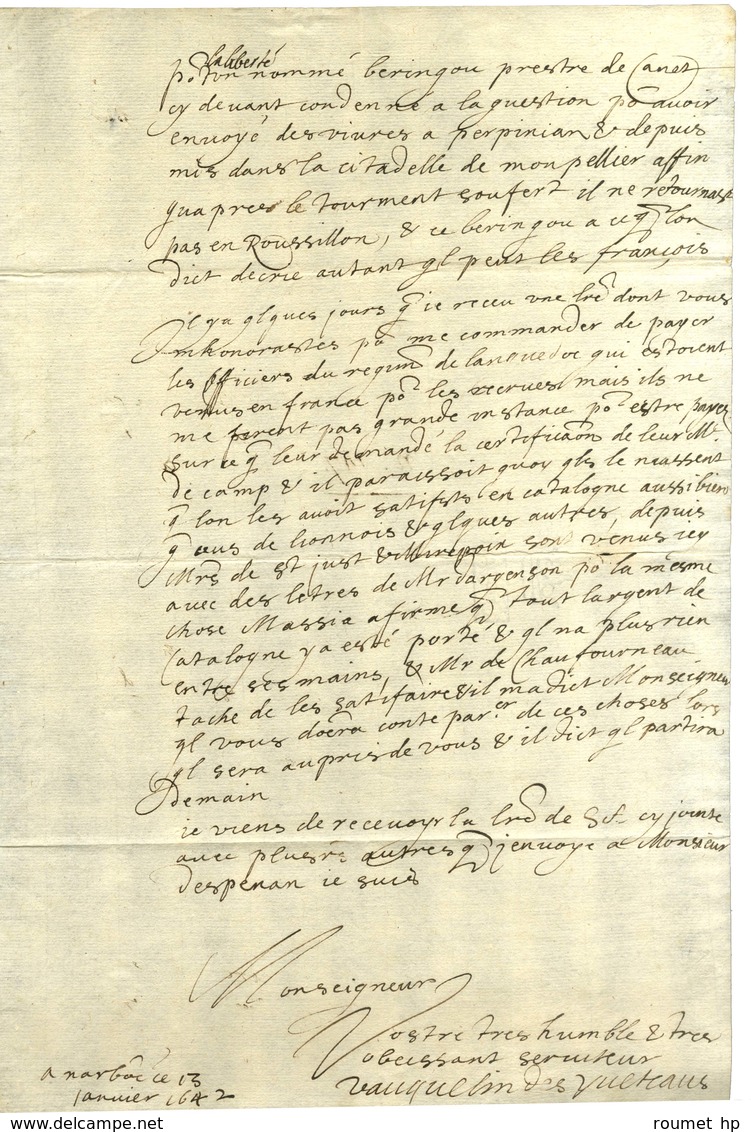 la liberté
po.r un nommé beringou prestre de Canet
cy devant condenné a la question po.r avoir
envoyé des vivres a perpinian & depuis
mis dans la citadelle de monpellier affin
quapres le tourment soufert il ne retournast
pas en Roussillon, & ce beringou a ce q lon
dict decrie autant ql peut les francois
Il y a qlques jours q ie receu vne lre dont vous
mhonorastes po.r me commander de payer
les officiers du regim.t de languedoc qui estoient
venus en france po.r les recrues mais ils ne
me firent pas grande instance po.r estre payes
sur ce q leur demandé la certificaon de leur M.e
de camp & il paraissoit quoy qls le niassent
q lon les avoit satisfsts en catalogne aussi bien
q ceus de lionnois & qlques autres, depuis
Mrs de St just & Mirepoin sont venus icy
avec des letres de Mr dargenson po.r la mesme
chose Massia afirme q tout largent de
Catalogne y a esté porté & ql na plus rien
entre ses mains, & Mr de Chaufourneau
tache de les satifaire & il ma dict Monseigneur
ql vous doera conte par.er de ces choses lors
ql sera aupris de vous & il dict ql partira
demain
ie viens de recevoyr la lre de St. cy jointe
avec plusrs autres q jenvoye a Monsieur
despenan ie suis
Monseigneur
Vostre tres humble & tres
obeissant serviteur
Vauquelin des yveteaus
a narboe ce 13
Janvier 1642
roumet hp